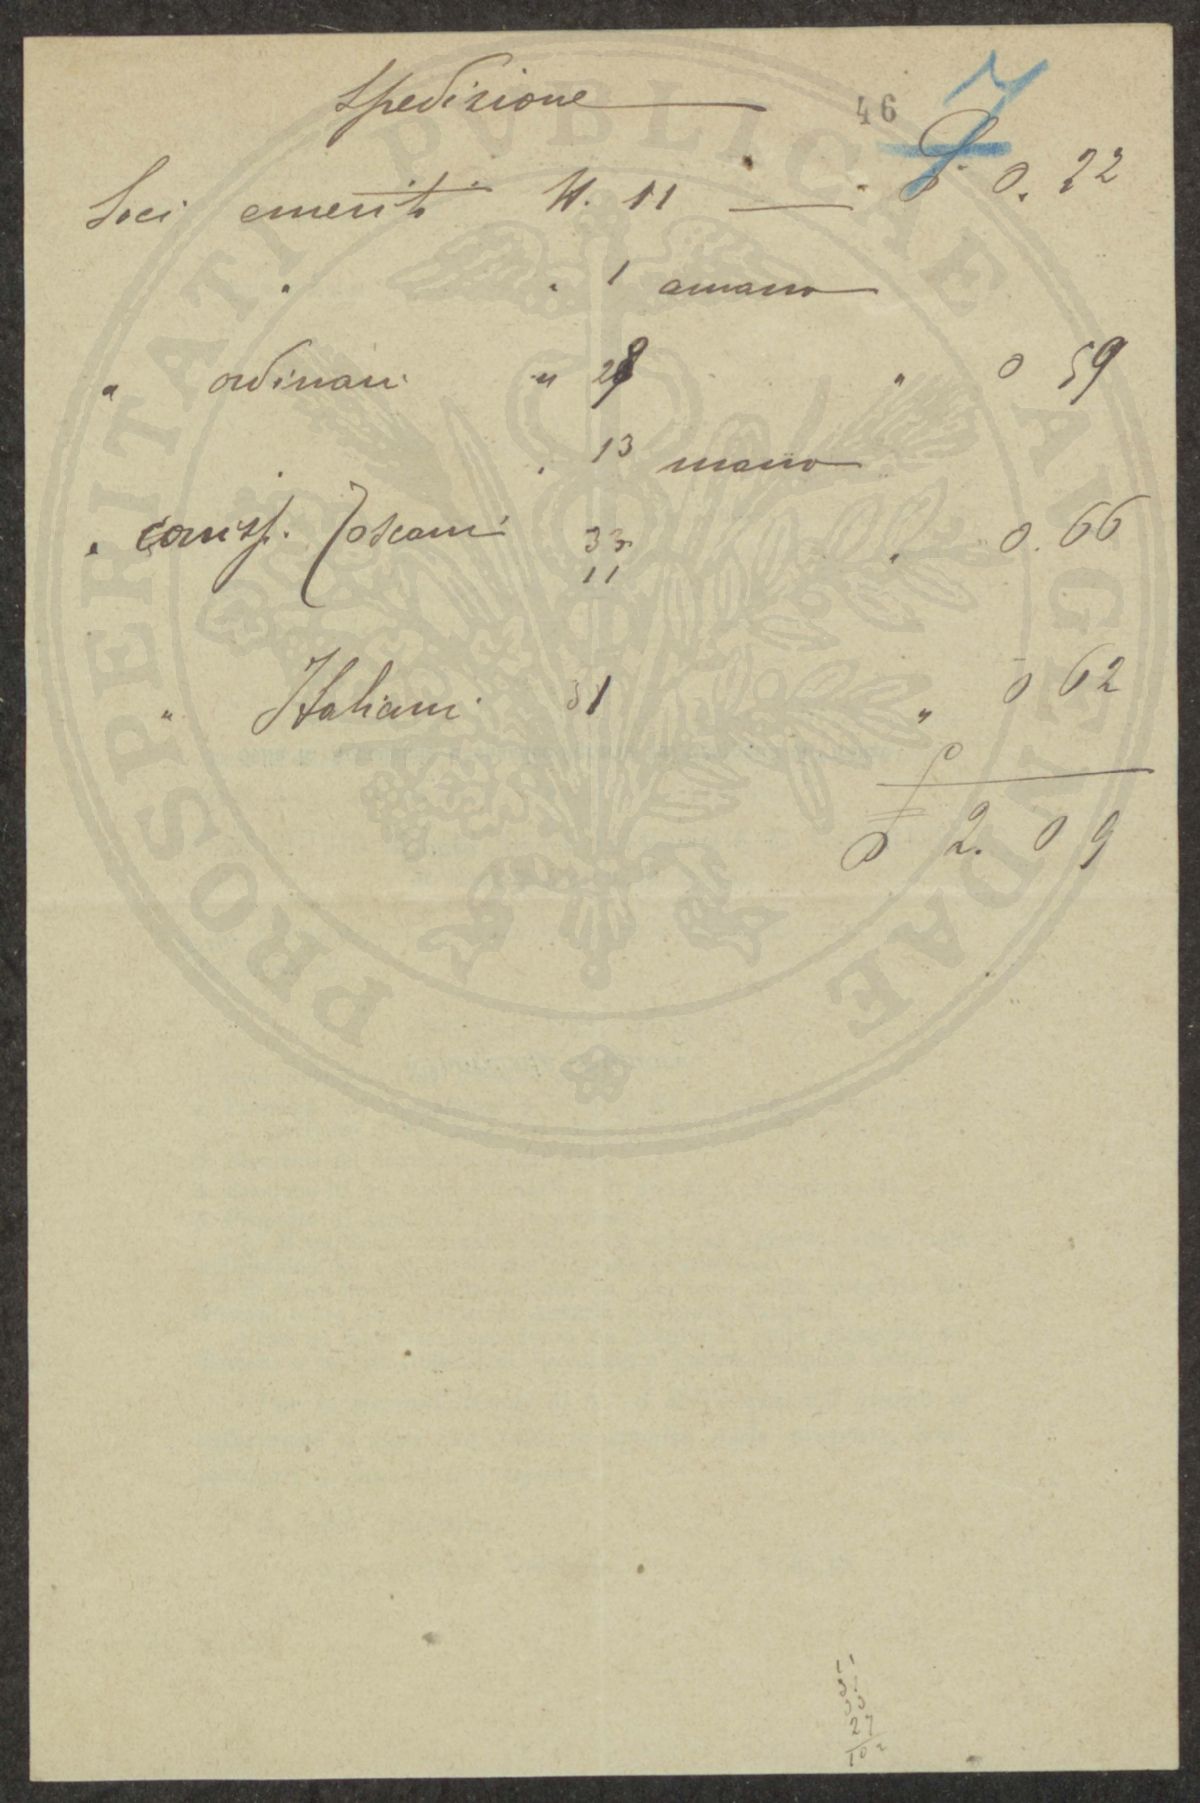 Spedizione
46 7
Soci emeriti N. 11 — £ 0.22
" " 1 a mano
" ordinari " 28 " 0 59
" 13 mano
" corrisp. Toscani 33 " 0.66
11
" Italiani 31 " 0 62
£ 2.09
11
31
33
27
102
PROSPERITATI PVBLICAE AVGENDAE